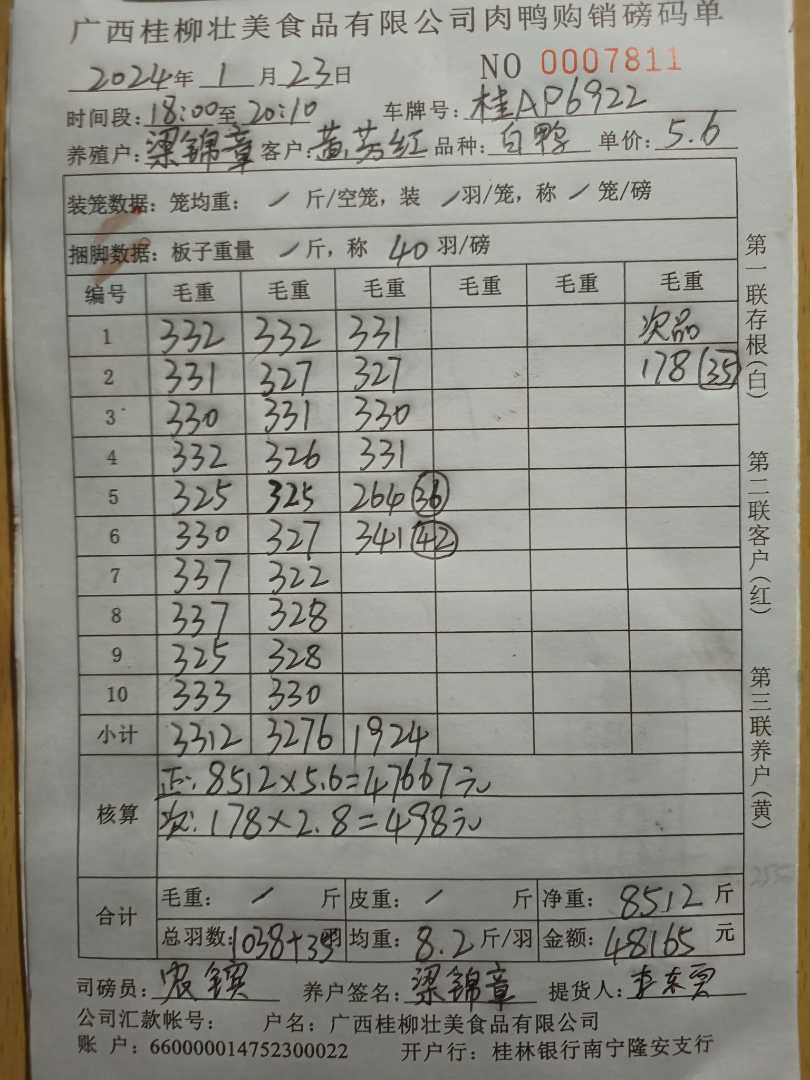 广西桂柳壮美食品有限公司肉鸭购销磅码单
2024年 1月23日 NO 0007811
时间段:18:00至20:10 车牌号:桂AP6922
养殖户:梁锦章 客户:黄芬红 品种:白鸭 单价:5.6
装笼数据:笼均重: / 斤/空笼,装 /羽/笼,称 / 笼/磅
捆脚数据:板子重量 /斤,称 40羽/磅
编号 毛重 毛重 毛重 毛重 毛重 毛重
1 332 332 331 次品
2 331 327 327 178(35)
3 330 331 330
4 332 326 331
5 325 325 264(36)
6 330 327 341(42)
7 337 322
8 337 328
9 325 328
10 333 330
小计 3312 3276 1924
核算 正:8512×5.6=47667元
次:178×2.8=498元
合计 毛重: / 斤 皮重: / 斤 净重: 8512斤
总羽数:1038+35羽 均重: 8.2斤/羽 金额:48165元
司磅员: 养户签名:梁锦章 提货人:
公司汇款帐号: 户名:广西桂柳壮美食品有限公司
账 户:660000014752300022 开户行:桂林银行南宁隆安支行
第一联存根(白)
第二联客户(红)
第三联养户(黄)